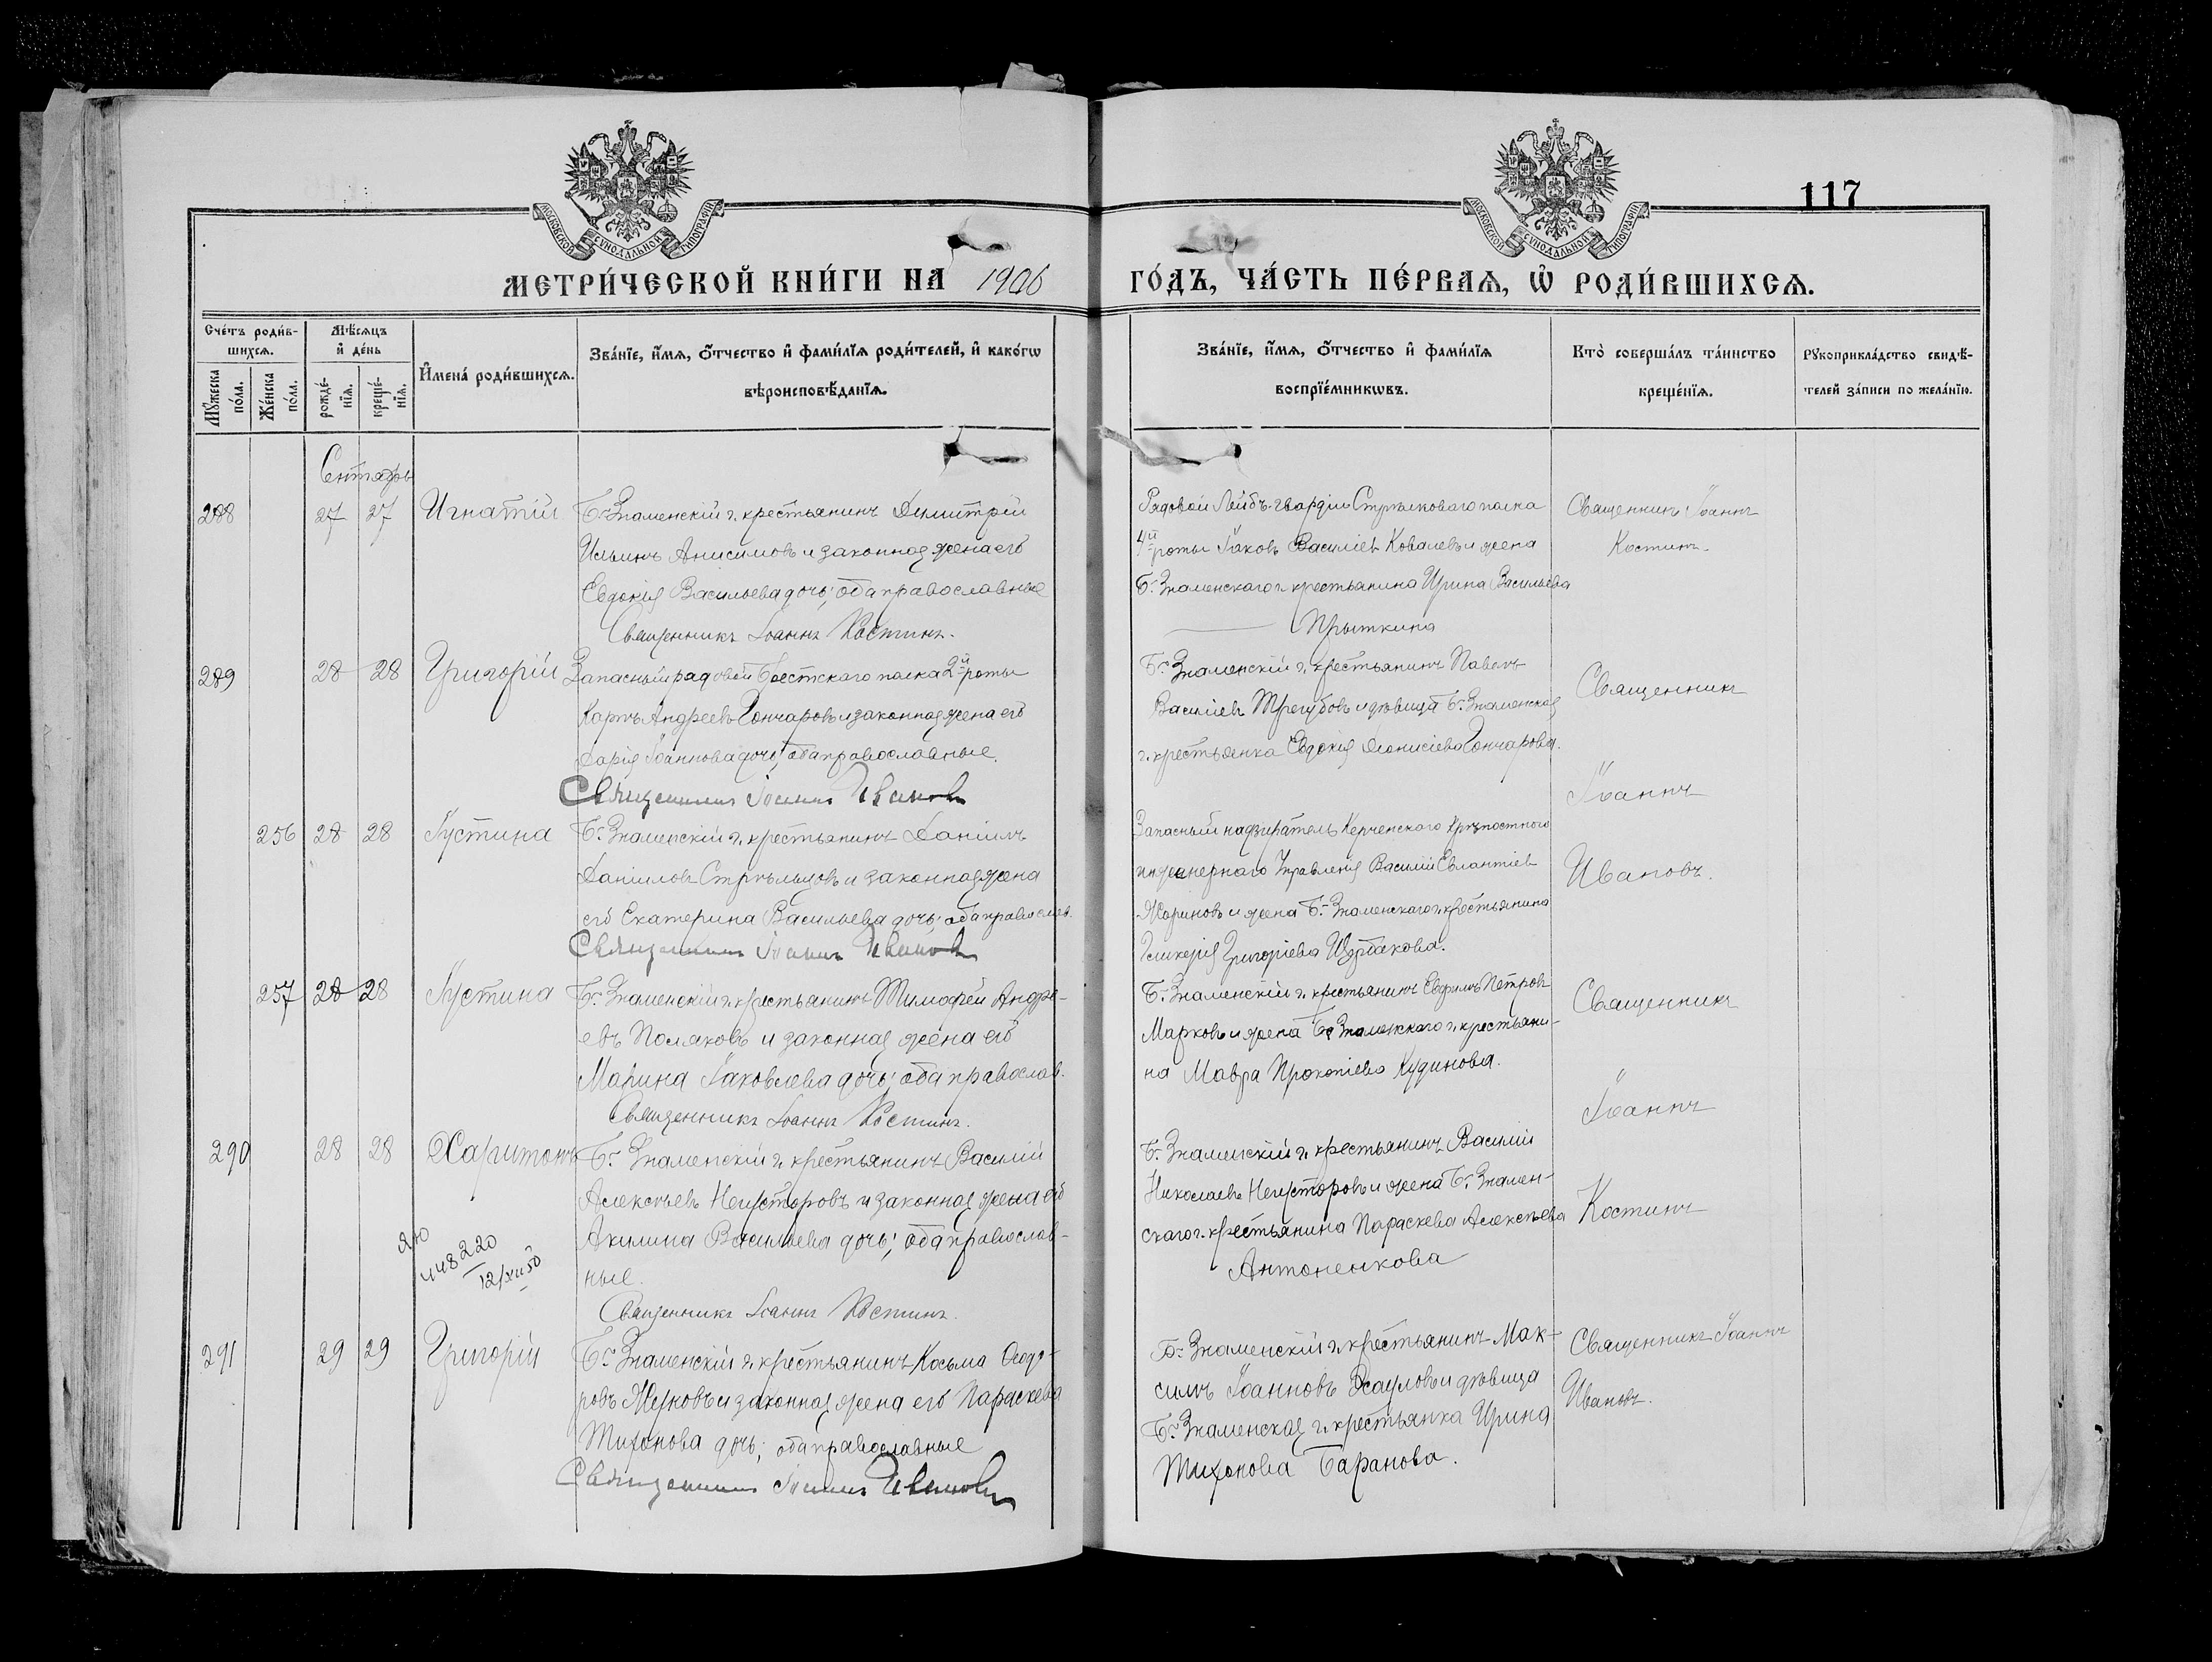 МОСКОВСКОЙ СѴНОДАЛЬНОЙ ТИПОГРАФІИ
МОСКОВСКОЙ СѴНОДАЛЬНОЙ ТИПОГРАФІИ
117
МЕТРИ́ЧЕСКОЙ КНИ́ГИ НА 1906
ГО́ДЪ, ЧА́СТЬ ПЕ́РВАѦ, Ѡ҆ РОДИ́ВШИХСѦ.
Сче́тъ роди́в-
шихсѧ.
Мѣ́сѧцъ
и҆ де́нь
Мꙋ́жеска
по́ла.
Же́нска
по́ла.
рожде́-
нїѧ.
креще́-
нїѧ.
И҆мена̀ роди́вшихсѧ.
Зва́нїе, и҆́мѧ, ѻ҆́тчество и҆ фами́лїѧ роди́телей, и҆ како́гѡ
вѣроисповѣ́данїѧ.
Зва́нїе, и҆́мѧ, ѻ҆́тчество и҆ фами́лїѧ
воспрїе́мникѡвъ.
Кто̀ соверша́лъ та́инство
креще́нїѧ.
Рꙋкоприкла́дство свидѣ́-
телей за́писи по жела́нїю.
Сентябрь
288 27 27 Игнатій
Б-Знаменскій г. крестьянинъ Димитрій
Ильинъ Анисимовъ и законная жена его
Евдокія Васильева дочь; оба православные
Священникъ Іоаннъ Костинъ.
Рядовой Лейбъ-гвардіи Стрѣлковаго полка
4й роты Іаковъ Василіев Ковалевъ и жена
Б-Знаменскаго г. крестьянина Ирина Васильева
Прыткина
Священникъ Іоаннъ
Костинъ.
289 28 28 Григорій
Запасный рядовой Брестскаго полка 2й роты
Карпъ Андреевъ Гончаровъ и законная жена его
Дарія Іоаннова дочь; оба православные.
Священникъ Іоаннъ Ивановъ
Б-Знаменскій г. крестьянинъ Павелъ
Василіев Трегубовъ и дѣвица Б-Знаменская
г. крестьянка Евдокія Діонисіева Гончарова.
Священникъ
Іоаннъ
Ивановъ.
256 28 28 Іустина
Б-Знаменскій г. крестьянинъ Даніилъ
Даніиловъ Стрѣльцовъ и законная жена
его Екатерина Васильева дочь; оба православ.
Священникъ Іоаннъ Ивановъ
Запасный надзиратель Керченского крѣпостного
инженернаго Управленія Василій Евлантіев
Жариновъ и жена Б-Знаменскаго г. крестьянина
Гликерія Григоріева Щербакова.
257 28 28 Іустина
Б-Знаменскій г. крестьянинъ Тимофей Андре-
евъ Поляковъ и законная жена его
Марина Іаковлева дочь; оба православ.
Священникъ Іоаннъ Костинъ.
Б-Знаменскій г. крестьянинъ Евфимъ Петров
Марковъ и жена Б-Знаменскаго г. крестьяни-
на Мавра Прокопіева Кудинова.
Священникъ
Іоаннъ
Костинъ
290 28 28 Харитонъ
Б-Знаменскій г. крестьянинъ Василій
Алексѣевъ Неусторовъ и законная жена его
Акилина Васильева дочь; оба православ-
ные.
Священникъ Іоаннъ Костинъ.
Б-Знаменскій г. крестьянинъ Василій
Николаевъ Неусторовъ и жена Б-Знамен-
скаго г. крестьянина Параскева Алексѣева
Антоненкова
448220
12/XII 50
291 29 29 Григорій
Б-Знаменскій г. крестьянинъ Косьма Ѳеодо-
ровъ Жуковъ и законная жена его Параскева
Тихонова дочь; оба православные
Священникъ Іоаннъ Ивановъ
Б-Знаменскій г. крестьянинъ Мак-
симъ Іоанновъ Есауловъ и дѣвица
Б-Знаменская г. крестьянка Ирина
Тихонова Баранова.
Священникъ Іоаннъ
Ивановъ.